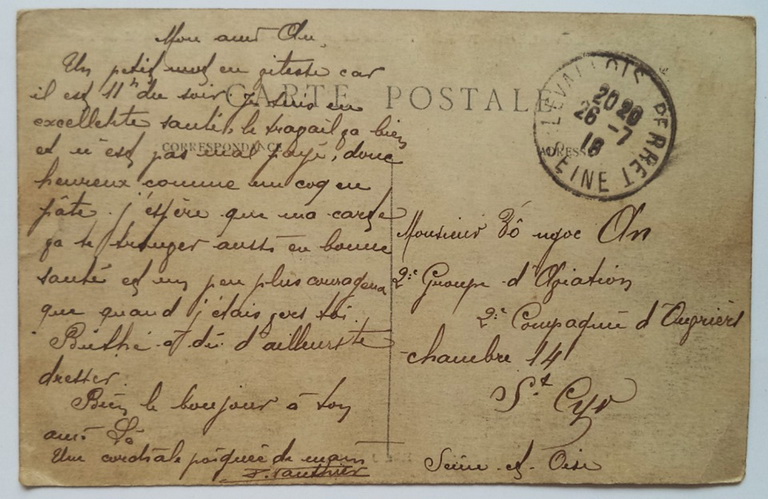 Mon ami An,
Un petit mot en vitesse car
il est 11h du soir, je suis en
excellente santé, le travail ça bien
et n'est pas mal payé, donc
heureux comme un coq en
pâte. j'espère que ma carte
ça te trouver aussi en bonne
santé et un peu plus courageux
que quand j'étais vers toi.
dû d'ailleurs te
dresser.
Bien le bonjour à ton
ami Lê
Une cordiale poignée de main
CARTE POSTALE
CORRESPONDANCE
ADRESSE
LEVALLOIS PERRET
20 20
26 -7
18
SEINE
Monsieur Võ ngoc An
2e Groupe d'Aviation
2e Compagnie d'Ouvriers
chambre 14
St Cyr
Seine et Oise